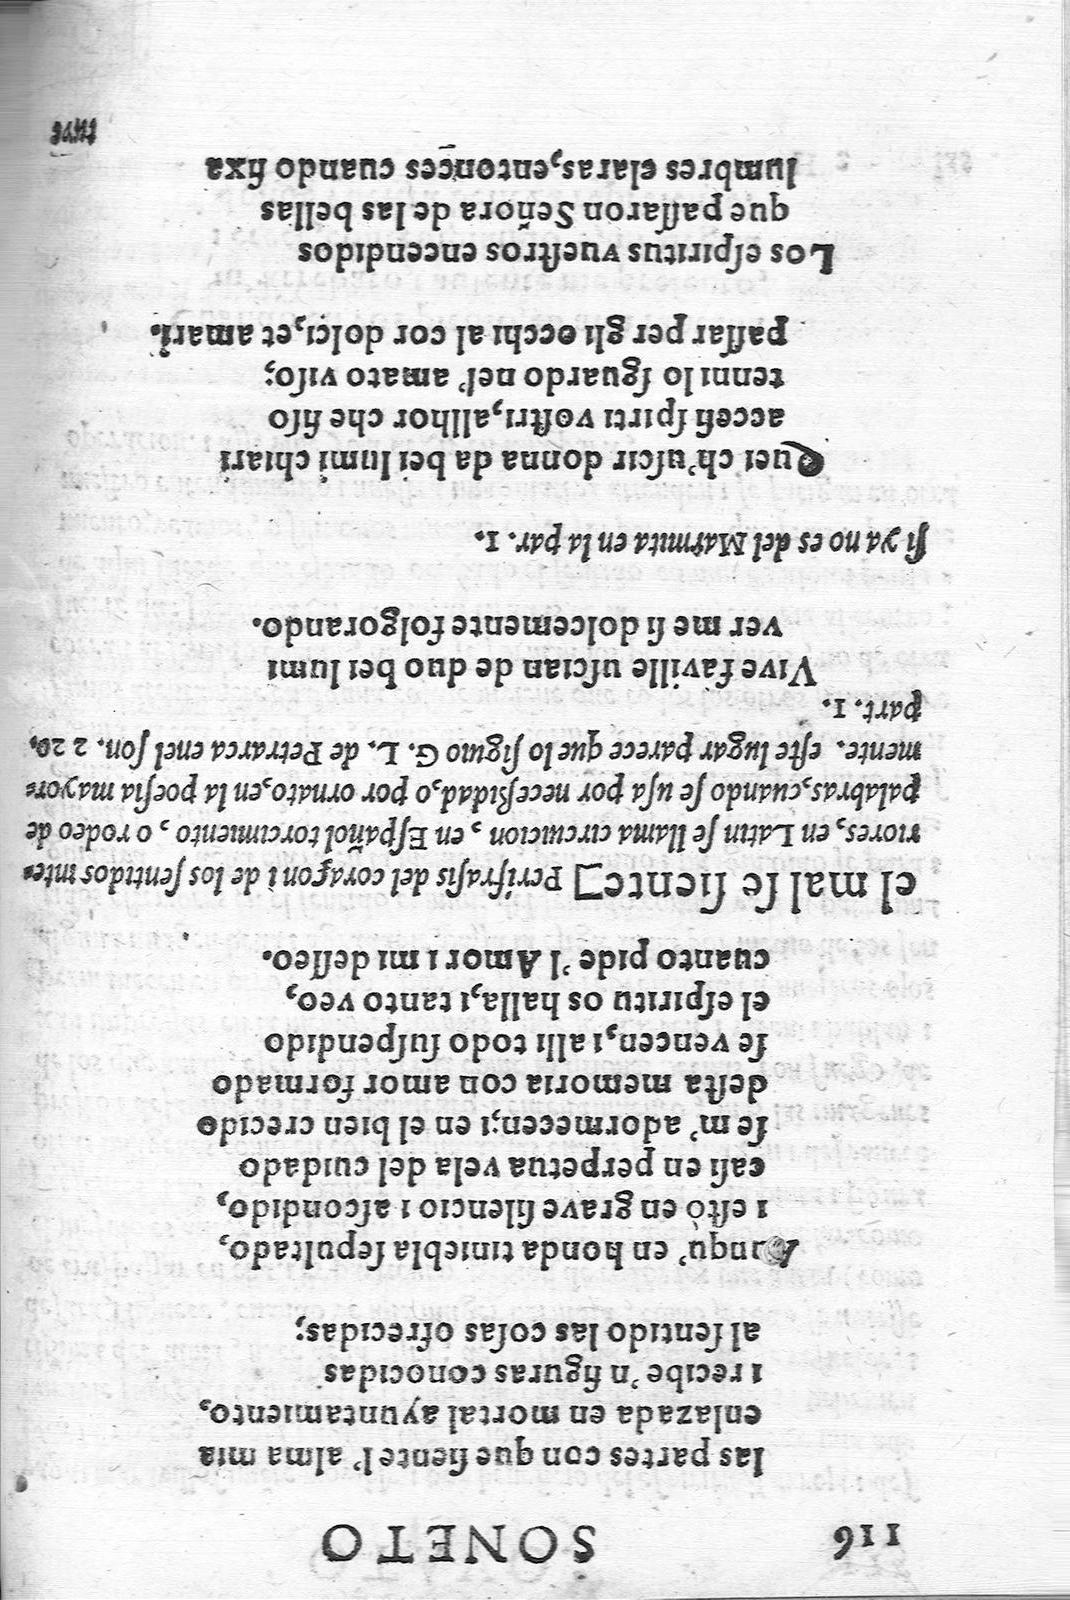 116 SONETO
las partes con que siente l' alma mia
enlazada en mortal ayuntamiento,
i recibe 'n figuras conocidas
al sentido las cosas ofrecidas;
Aunqu' en honda tiniebla sepultado,
i estò en grave silencio i ascondido,
casi en perpetua vela del cuidado
se m' adormecen; i en el bien crecido
desta memoria con amor formado
se vencen, i alli todo suspendido
el espiritu os halla, i tanto veo,
cuanto pide 'l Amor i mi desseo.
el mal se siente] Perifrasis del coraçon i de los sentidos inte-
riores, en Latin se llama circuicion, en Español torcimiento, o rodeo de
palabras, cuando se usa por necessidad, o por ornato, en la poesia mayor-
mente. este lugar parece que lo siguio G. L. de Petrarca en el son. 220.
part. 1.
Vive faville uscian de duo bei lumi
ver me si dolcemente folgorando.
si ya no es del Marmita en la par. 1.
Quei ch' uscir donna da bei lumi chiari
accesi spirti vostri, allhor che fiso
tenni lo sguardo nel' amato viso;
passar per gli occhi al cor dolci, et amari.
Los espiritus vuestros encendidos
que passaron Señora de las bellas
lumbres claras, entonces cuando fixa
tuve